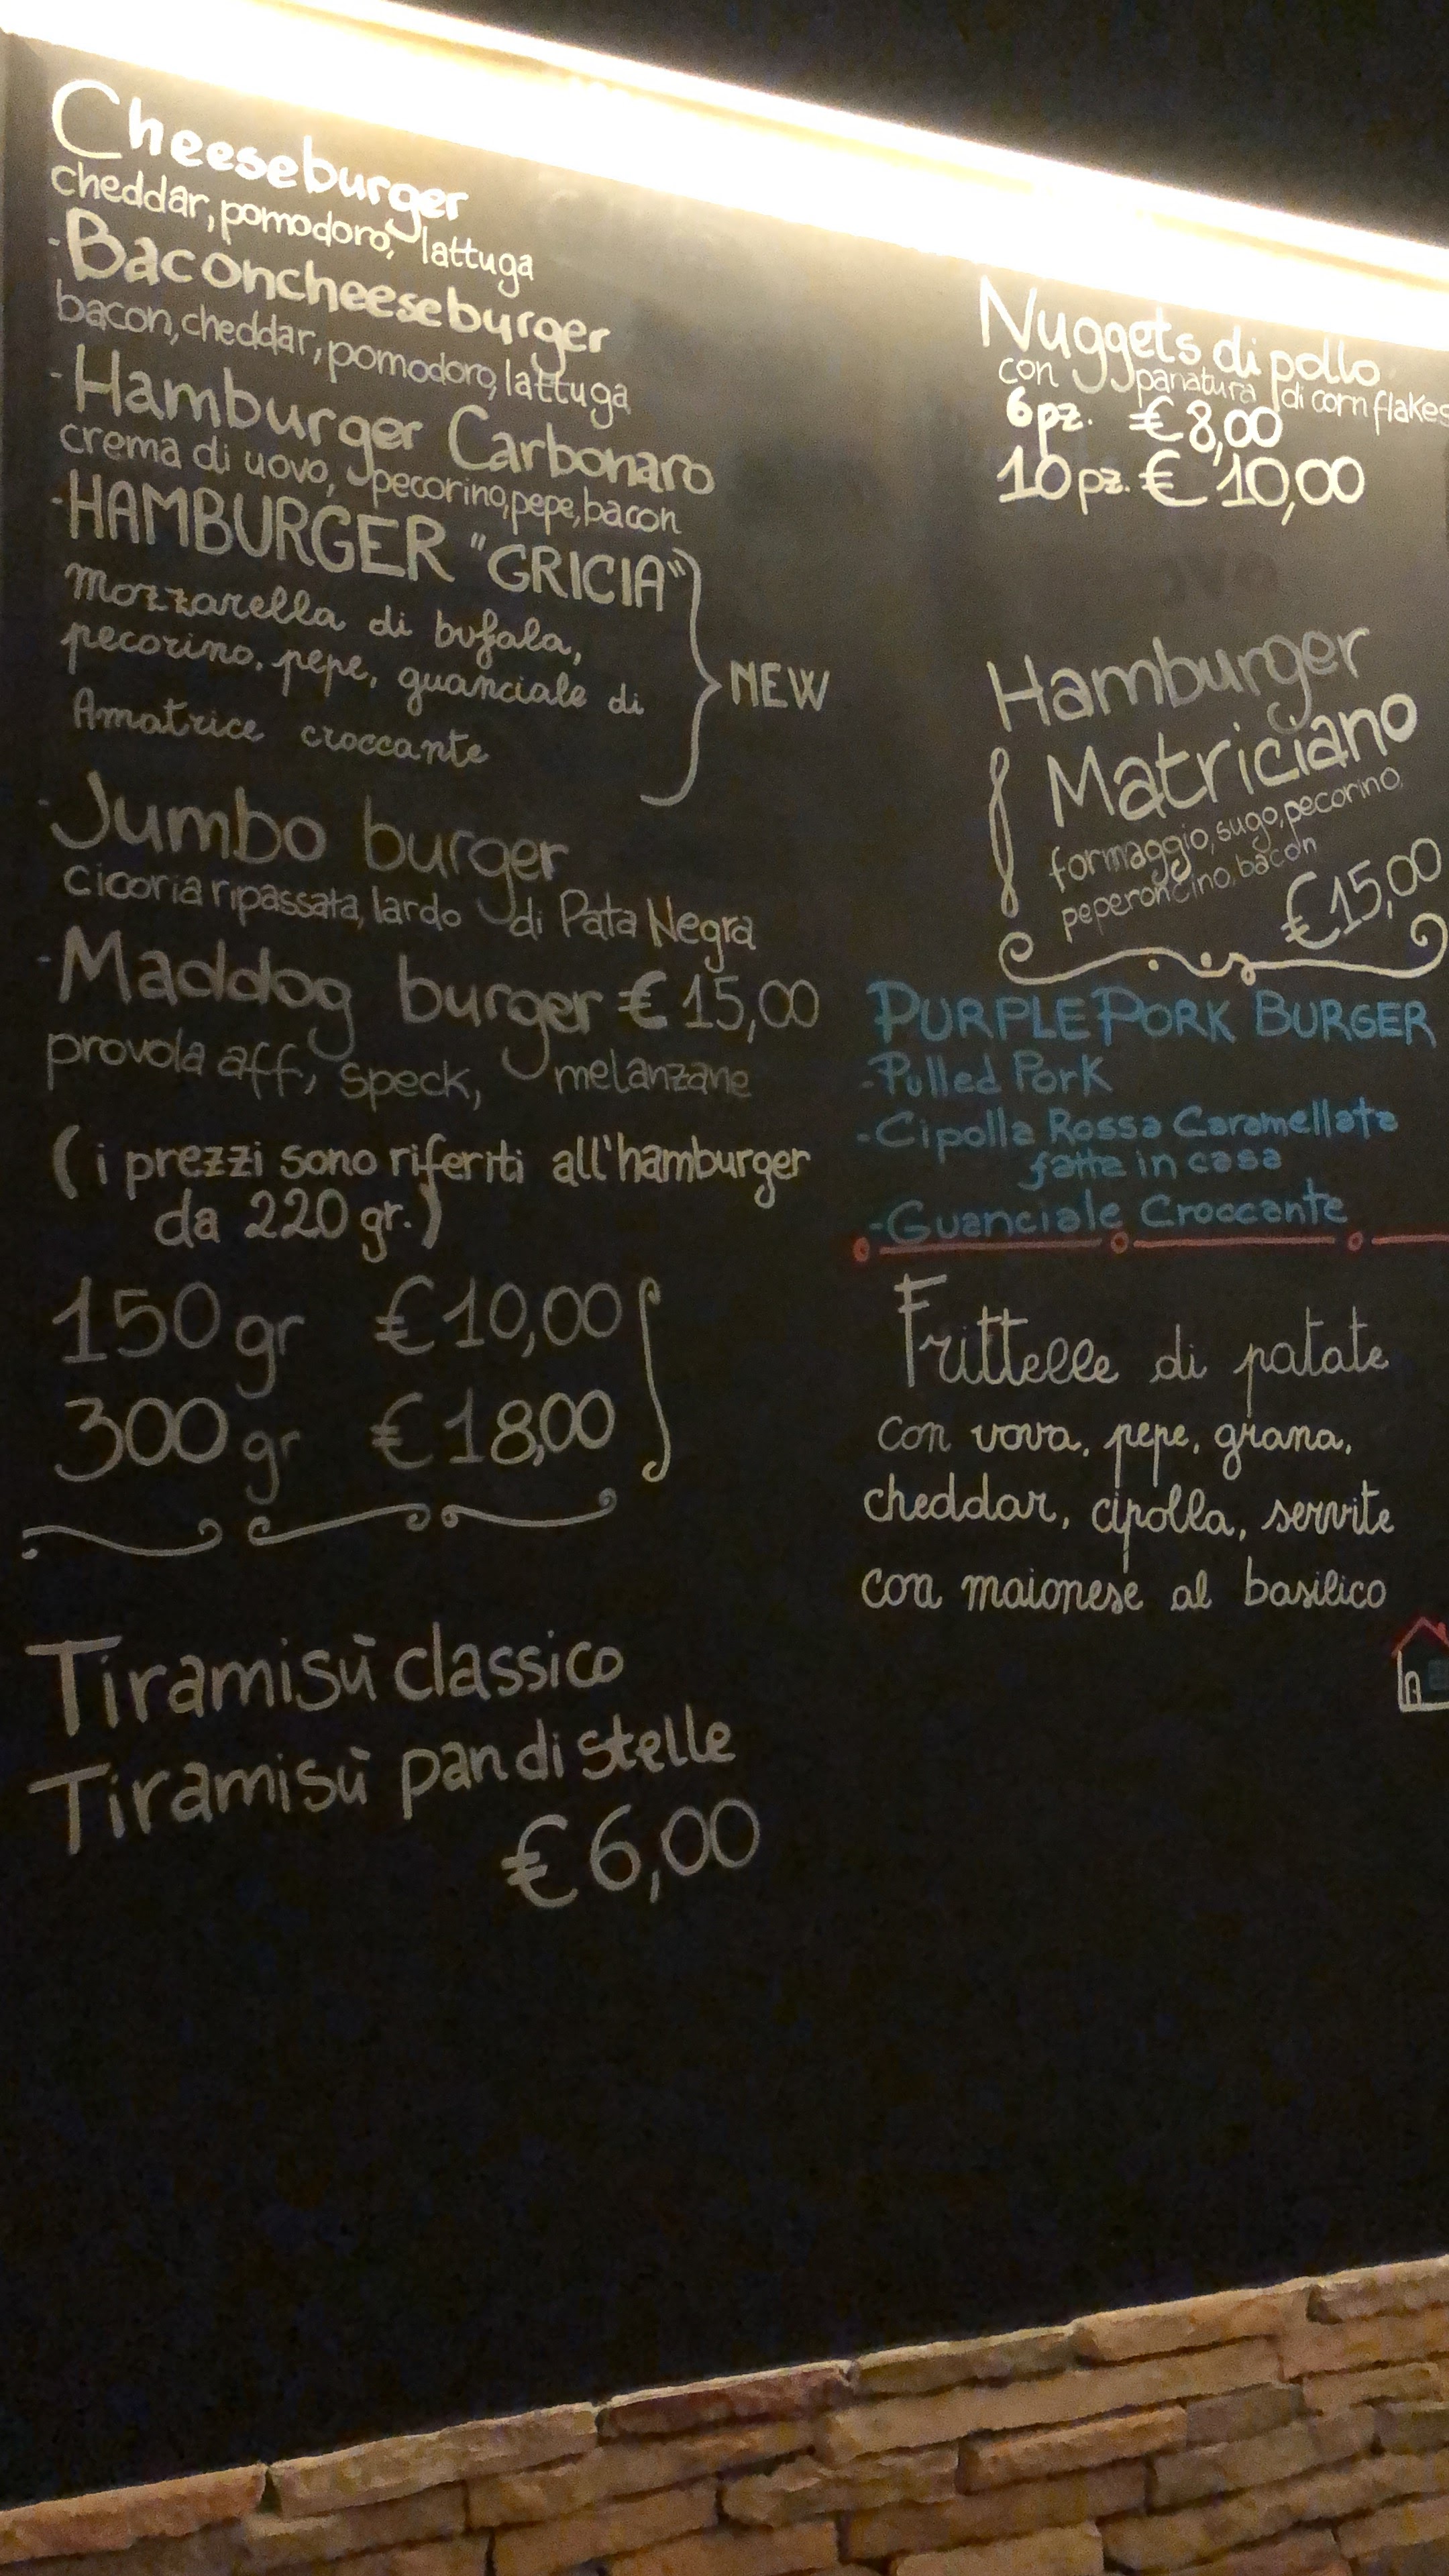 Cheeseburger
cheddar, pomodoro, lattuga
-Baconcheeseburger
bacon, cheddar, pomodoro, lattuga
-Hamburger Carbonaro
crema di uovo, pecorino, pepe, bacon
-HAMBURGER "GRICIA"
Mozzarella di bufala,
pecorino, pepe, guanciale di
Amatrice croccante
NEW
-Jumbo burger
cicoria ripassata, lardo di Pata Negra
-Maddog burger € 15,00
provola aff, speck, melanzane
(i prezzi sono riferiti all'hamburger
da 220 gr.)
150 gr € 10,00
300 gr € 18,00
Tiramisù classico
Tiramisù pan di stelle
€ 6,00
Nuggets di pollo
con panatura di corn flakes
6 pz. € 8,00
10 pz. € 10,00
Hamburger
Matriciano
formaggio, sugo, pecorino,
peperoncino, bacon
€ 15,00
PURPLE PORK BURGER
-Pulled Pork
-Cipolla Rossa Caramellata
fatta in casa
-Guanciale Croccante
Frittelle di patate
con uova, pepe, grana,
cheddar, cipolla, servite
con maionese al basilico